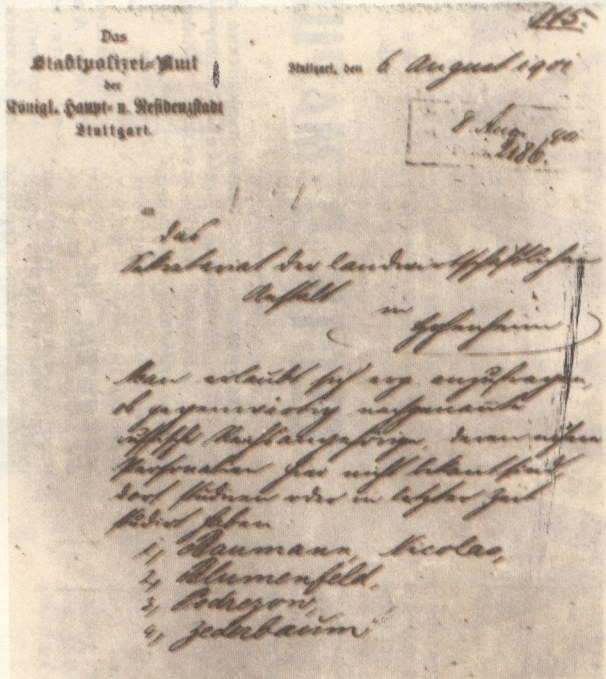 115.
Das
Stadtpolizei-Amt
der
Königl. Haupt- u. Residenzstadt
Stuttgart.
Stuttgart, den 6 August 1901
8. Aug.
2186.
an
das
Sekretariat der landwirtschaftlichen
Anstalt
in
Hohenheim
Man erlaubt sich erg. anzufragen,
ob gegenwärtig nachgenannte
russische Reichsangehörige, deren nähere
Personalien hier nicht bekannt sind
dort studieren oder in letzter Zeit
studiert haben
1, Baumann, Nicolas,
2, Blumenfeld,
3, Podrezon,
4, Zederbaum